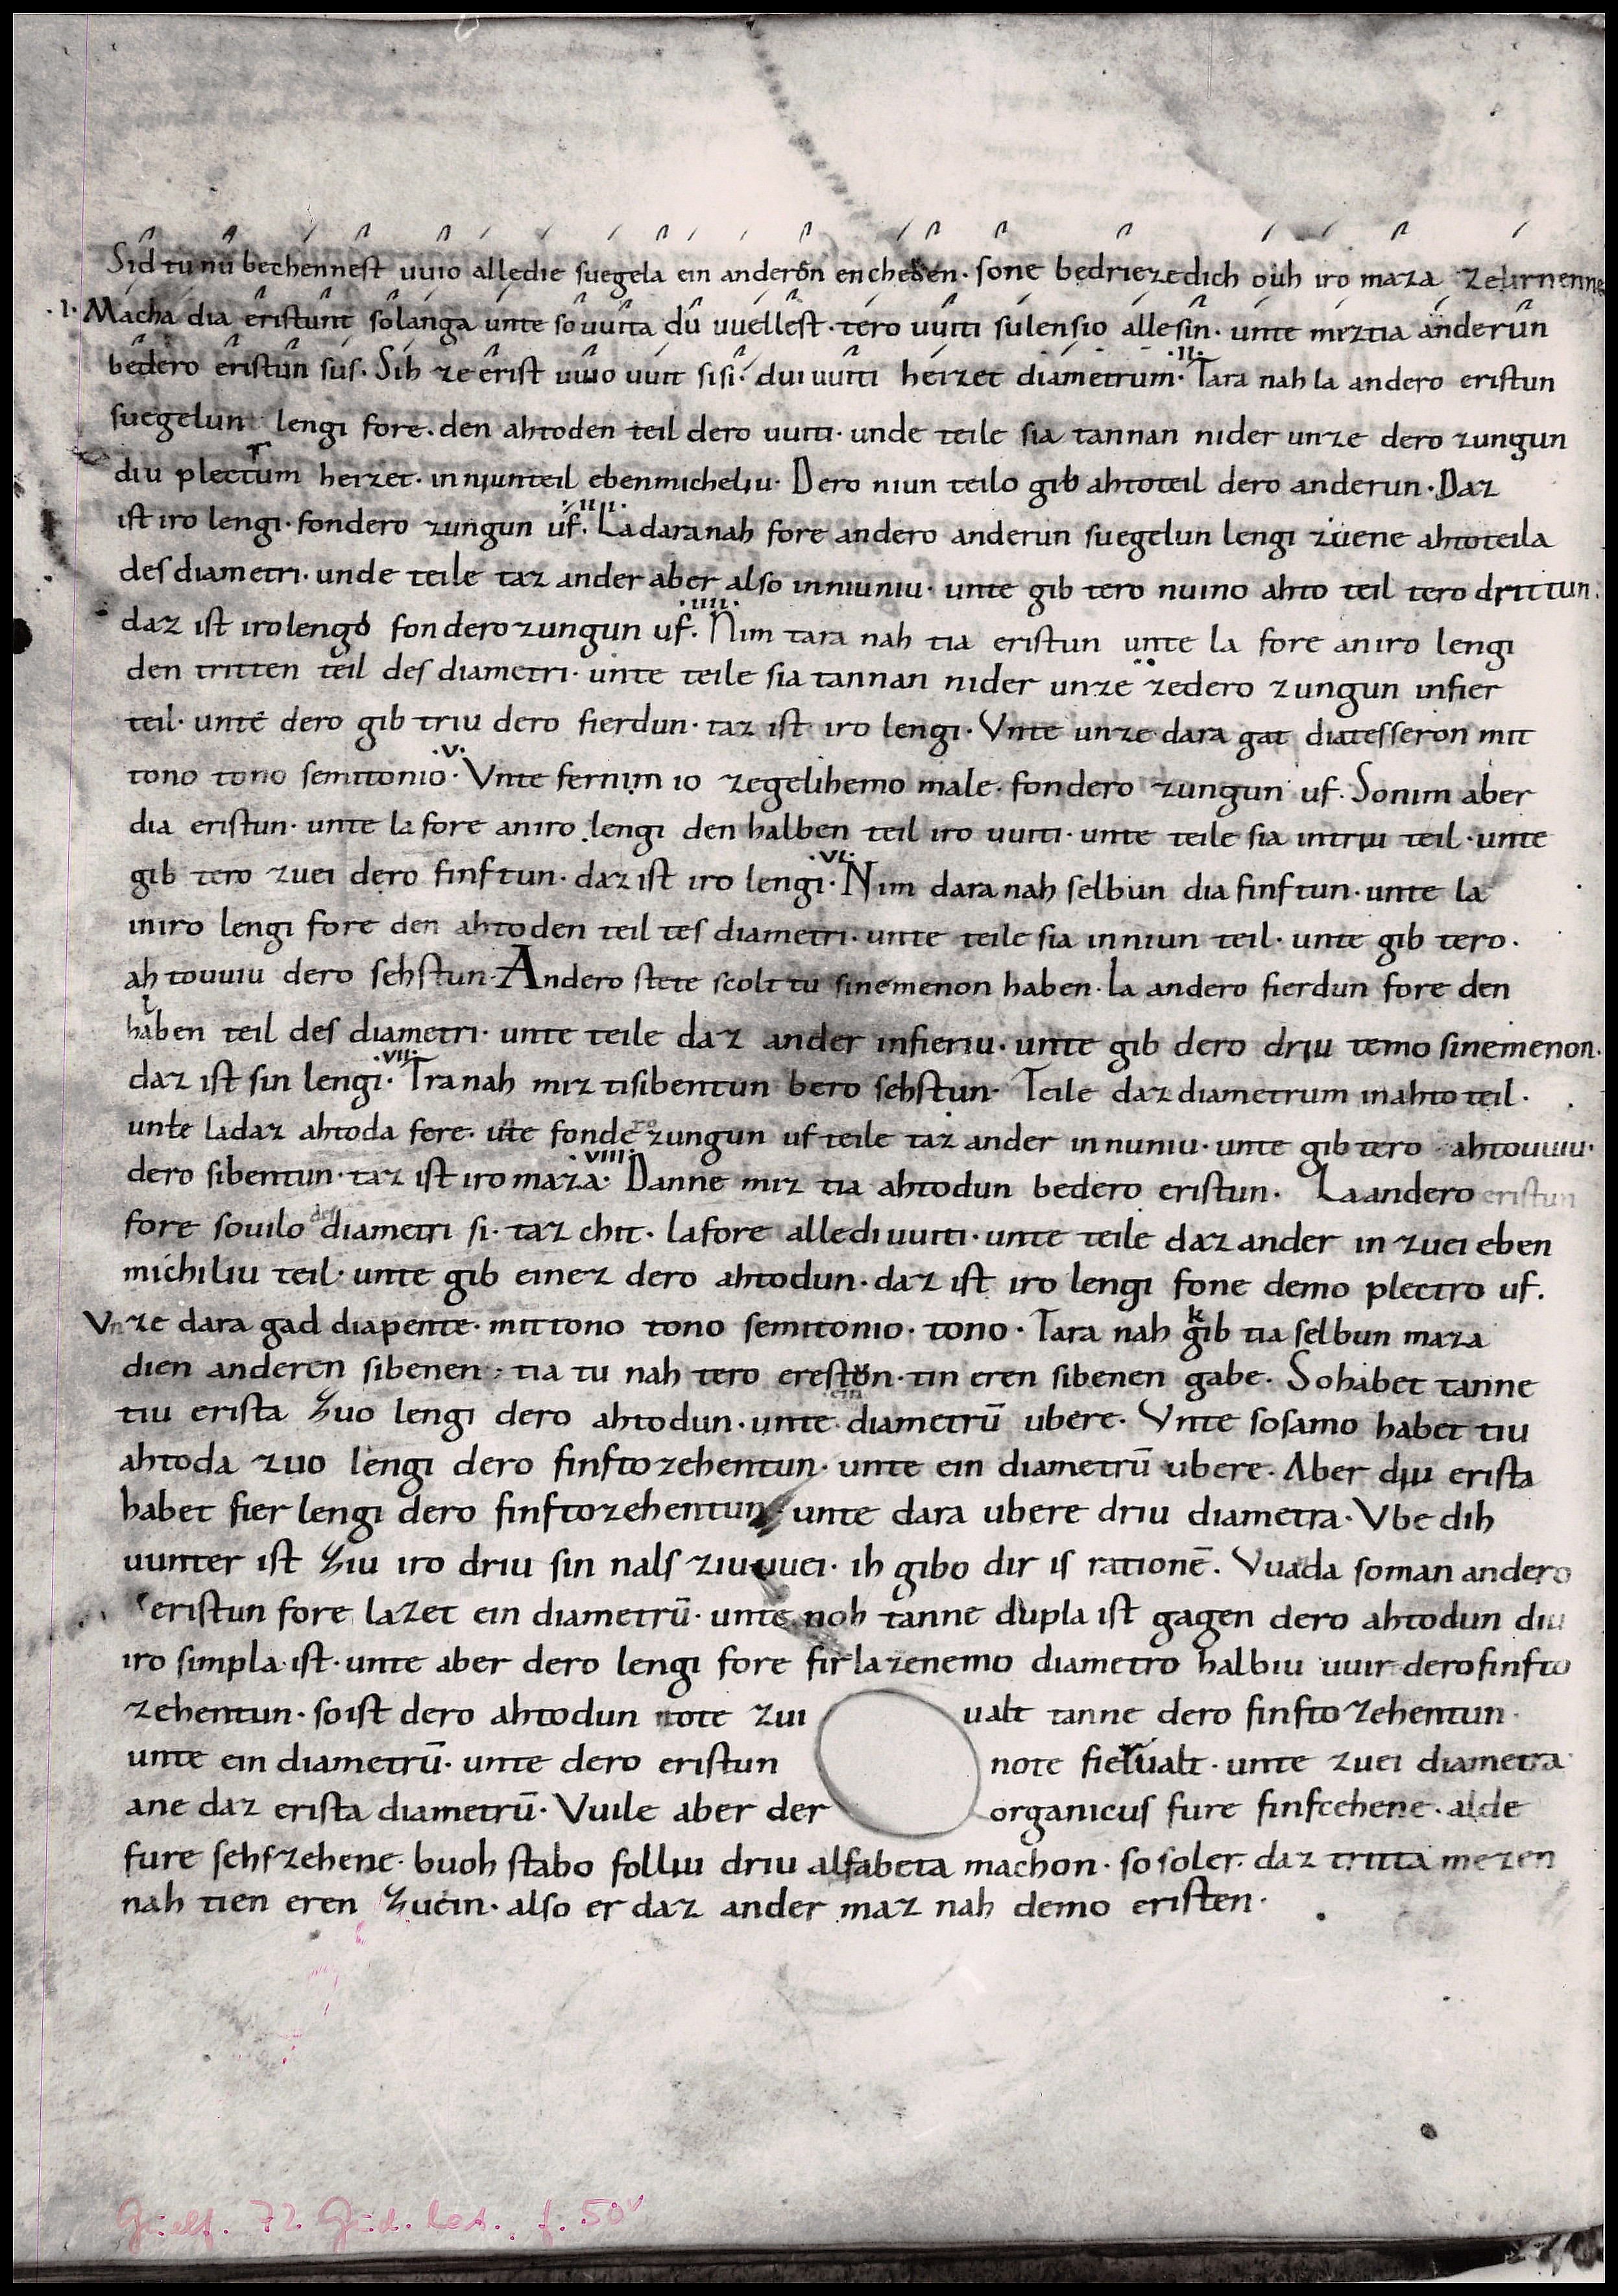 Sid tu nu bechennest uuio alle die suegela ein anderon encheden. sone bedrieze dich ouh iro maza zelirnenne
.I. Macha dia eristunt solanga unte so uuita du uuellest. tero uuiti sulen sio alle sin. unte miz tia anderun
bedero eristun sus. Sih ze erist uuio uuit si si. dui uuiti heizet diametrum. .II. Tara nah la andero eristun
suegelun lengi fore. den ahtoden teil dero uuiti. unde teile sia tannan nider unze dero zungun
diu plectrum heizet. in niunteil ebenmicheliu. Dero niun teilo gib ahtoteil dero anderun. Daz
ist iro lengi. fondero zungun uf. .III. La daranah fore andero anderun suegelun lengi zuene ahtoteila
des diametri. unde teile taz ander aber also in niuniu. unte gib tero nuino ahto teil tero drittun.
daz ist iro lengo fon dero zungun uf. .IIII. Nim tara nah tia eristun unte la fore an iro lengi
den tritten teil des diametri. unte teile sia tannan nider unze zedero zungun infier
teil. unte dero gib triu dero fierdun. taz ist iro lengi. Vnte unze dara gat diatesseron mit
tono tono semitonio. .V. Vnte fernim io zegelihemo male. fondero zungun uf. So nim aber
dia eristun. unte la fore an iro lengi den halben teil iro uuiti. unte teile sia in triu teil. unte
gib tero zuei dero finftun. daz ist iro lengi. .VI. Nim dara nah selbun dia finftun. unte la
iniro lengi fore den ahtoden teil tes diametri. unte teile sia in niun teil. unte gib tero.
ahtouuiu dero sehstun. Andero stete scolt tu sinemenon haben. la andero fierdun fore den
halben teil des diametri. unte teile daz ander infieriu. unte gib dero driu temo sinemenon.
daz ist sin lengi. .VII. Tranah miz tisibentun bero sehstun. Teile daz diametrum in ahto teil.
unte la daz ahtoda fere. ute fondero zungun uf teile taz ander in nuniu. unte gib tero ahtouuiu.
dero sibentun. taz ist iro maza. .VIII. Danne miz tia ahtodun bedero eristun. La andero eristun
fore souilo des diametri si. taz chit. la fore alle di uuiti. unte teile daz ander in zuei eben
michiliu teil. unte gib einez dero ahtodun. daz ist iro lengi fone demo plectro uf.
Vnze dara gad diapente. mit tono tono semitonio. tono. Tara nah kgib tia selbun maza
dien anderen sibenen; tia tu nah tero ereston. tin eren sibenen gabe. So habet tanne
tiu erista zuo lengi dero ahtodun. unte ein diametrū ubere. Vnte sosamo habet tiu
ahtoda zuo lengi dero finfto zehentun. unte ein diametrū ubere. Aber diu erista
habet fier lengi dero finftozehentun. unte dara ubere driu diametra. Vbe dih
uunter ist ziu iro driu sin nals ziu uuei. ih gibo dir is rationē. Vuada soman andero
eristun fore lazet ein diametrū. unte noh tanne dupla ist gagen dero ahtodun diu
iro simpla ist. unte aber dero lengi fore fir lazenemo diametro halbiu uuir dero finfto
zehentun. so ist dero ahtodun note zui ualt tanne dero finfto zehentun.
unte ein diametrū. unte dero eristun note fierualt. unte zuei diametra
ane daz erista diametrū. Vuile aber der organicus fure finfcehene. alde
fure sehszehene. buoh stabo folliu driu alfabeta machon. so soler. daz tritta mezen
nah tien eren zuein. also er daz ander maz nah demo eristen.
Guelf. 72 Gud. lat., f. 50v